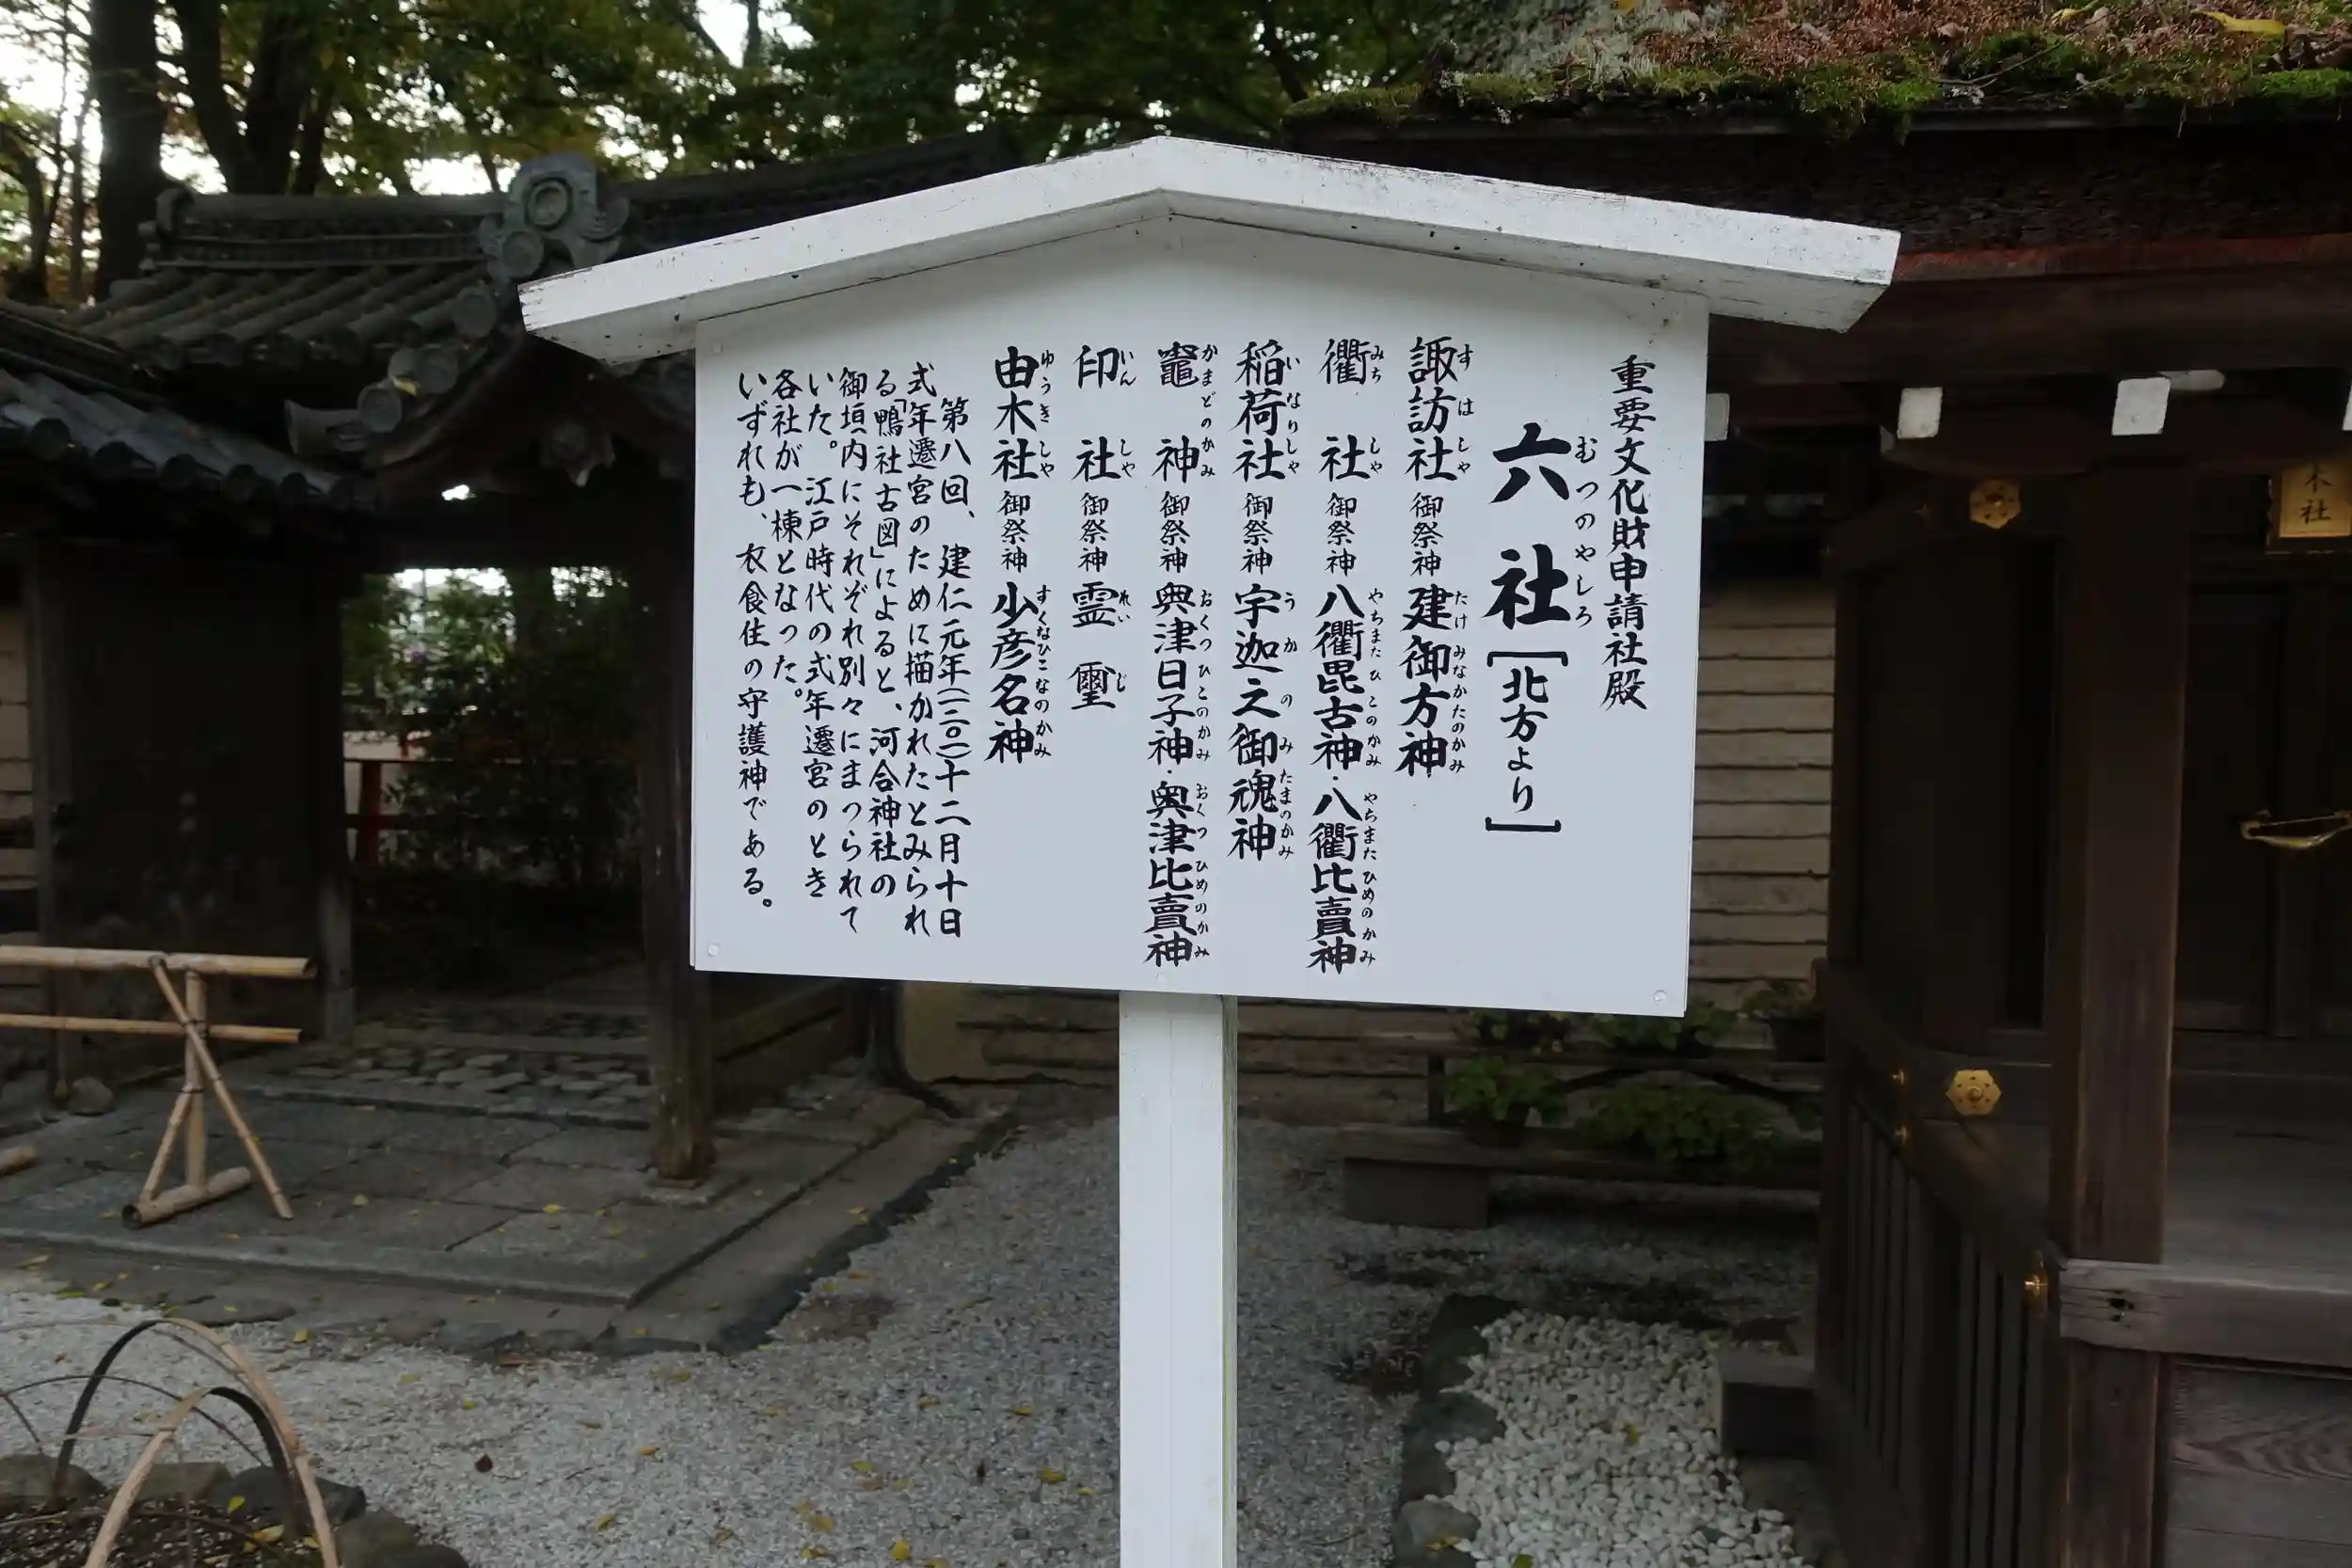 重要文化財申請社殿
六社[北方より]
むつのやしろ
諏訪社 御祭神 建御方神
すはしゃ たけみなかたのかみ
衢社 御祭神 八衢毘古神・八衢比賣神
みちしゃ やちまたひこのかみ やちまたひめのかみ
稲荷社 御祭神 宇迦之御魂神
いなりしゃ うかのみたまのかみ
竈神 御祭神 奥津日子神・奥津比賣神
かまどのかみ おくつひこのかみ おくつひめのかみ
印社 御祭神 霊璽
いんしゃ れいじ
由木社 御祭神 少彦名神
ゆうきしゃ すくなひこなのかみ
第八回、建仁元年(一二〇一)十二月十日
式年遷宮のために描かれたとみられ
る「鴨社古図」によると、河合神社の
御垣内にそれぞれ別々にまつられて
いた。江戸時代の式年遷宮のとき
各社が一棟となった。
いずれも、衣食住の守護神である。
木社